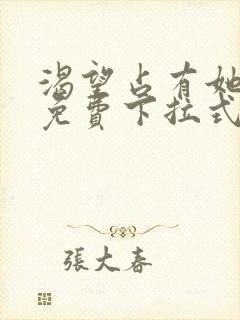 渴望占有她
免費下拉式
張大春